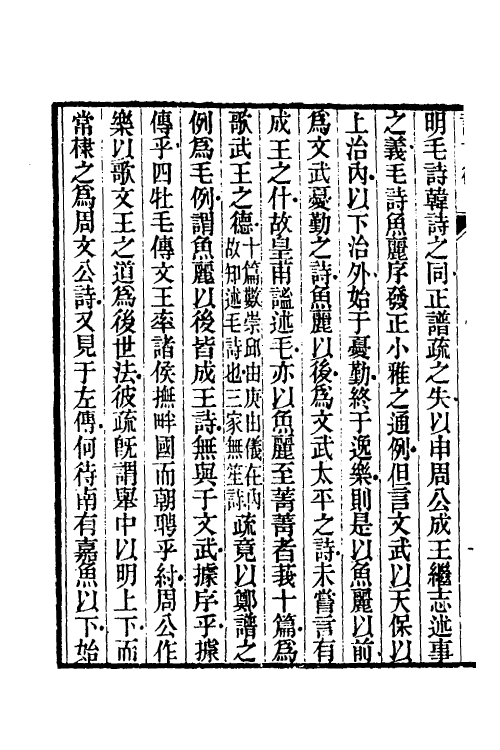 明毛詩韓詩之同正譜疏之失以申周公成王繼志述事
之義毛詩魚麗序發正小雅之通例但言文武以天保以
上治內以下治外始于憂勤終于逸樂則是以魚麗以前
爲文武憂勤之詩魚麗以後爲文武太平之詩未嘗言有
成王之什故皇甫謐述毛亦以魚麗至菁菁者莪十篇爲
歌武王之德十篇數崇邱由庚由儀在內故知述毛詩也三家無笙詩疏竟以鄭譜之
例爲毛例謂魚麗以後皆成王詩無與于文武據序乎據
傳乎四牡毛傳文王率諸侯撫畔國而朝聘乎紂周公作
樂以歌文王之道爲後世法彼疏旣謂舉中以明上下而
常棣之爲周文公詩又見于左傳何待南有嘉魚以下始